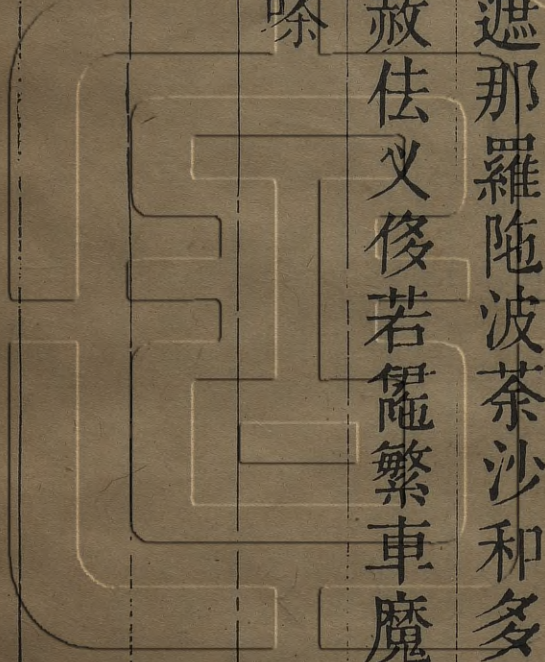 遮那羅陁波荼沙和多
赦佉义侈若繁車魔
嗏